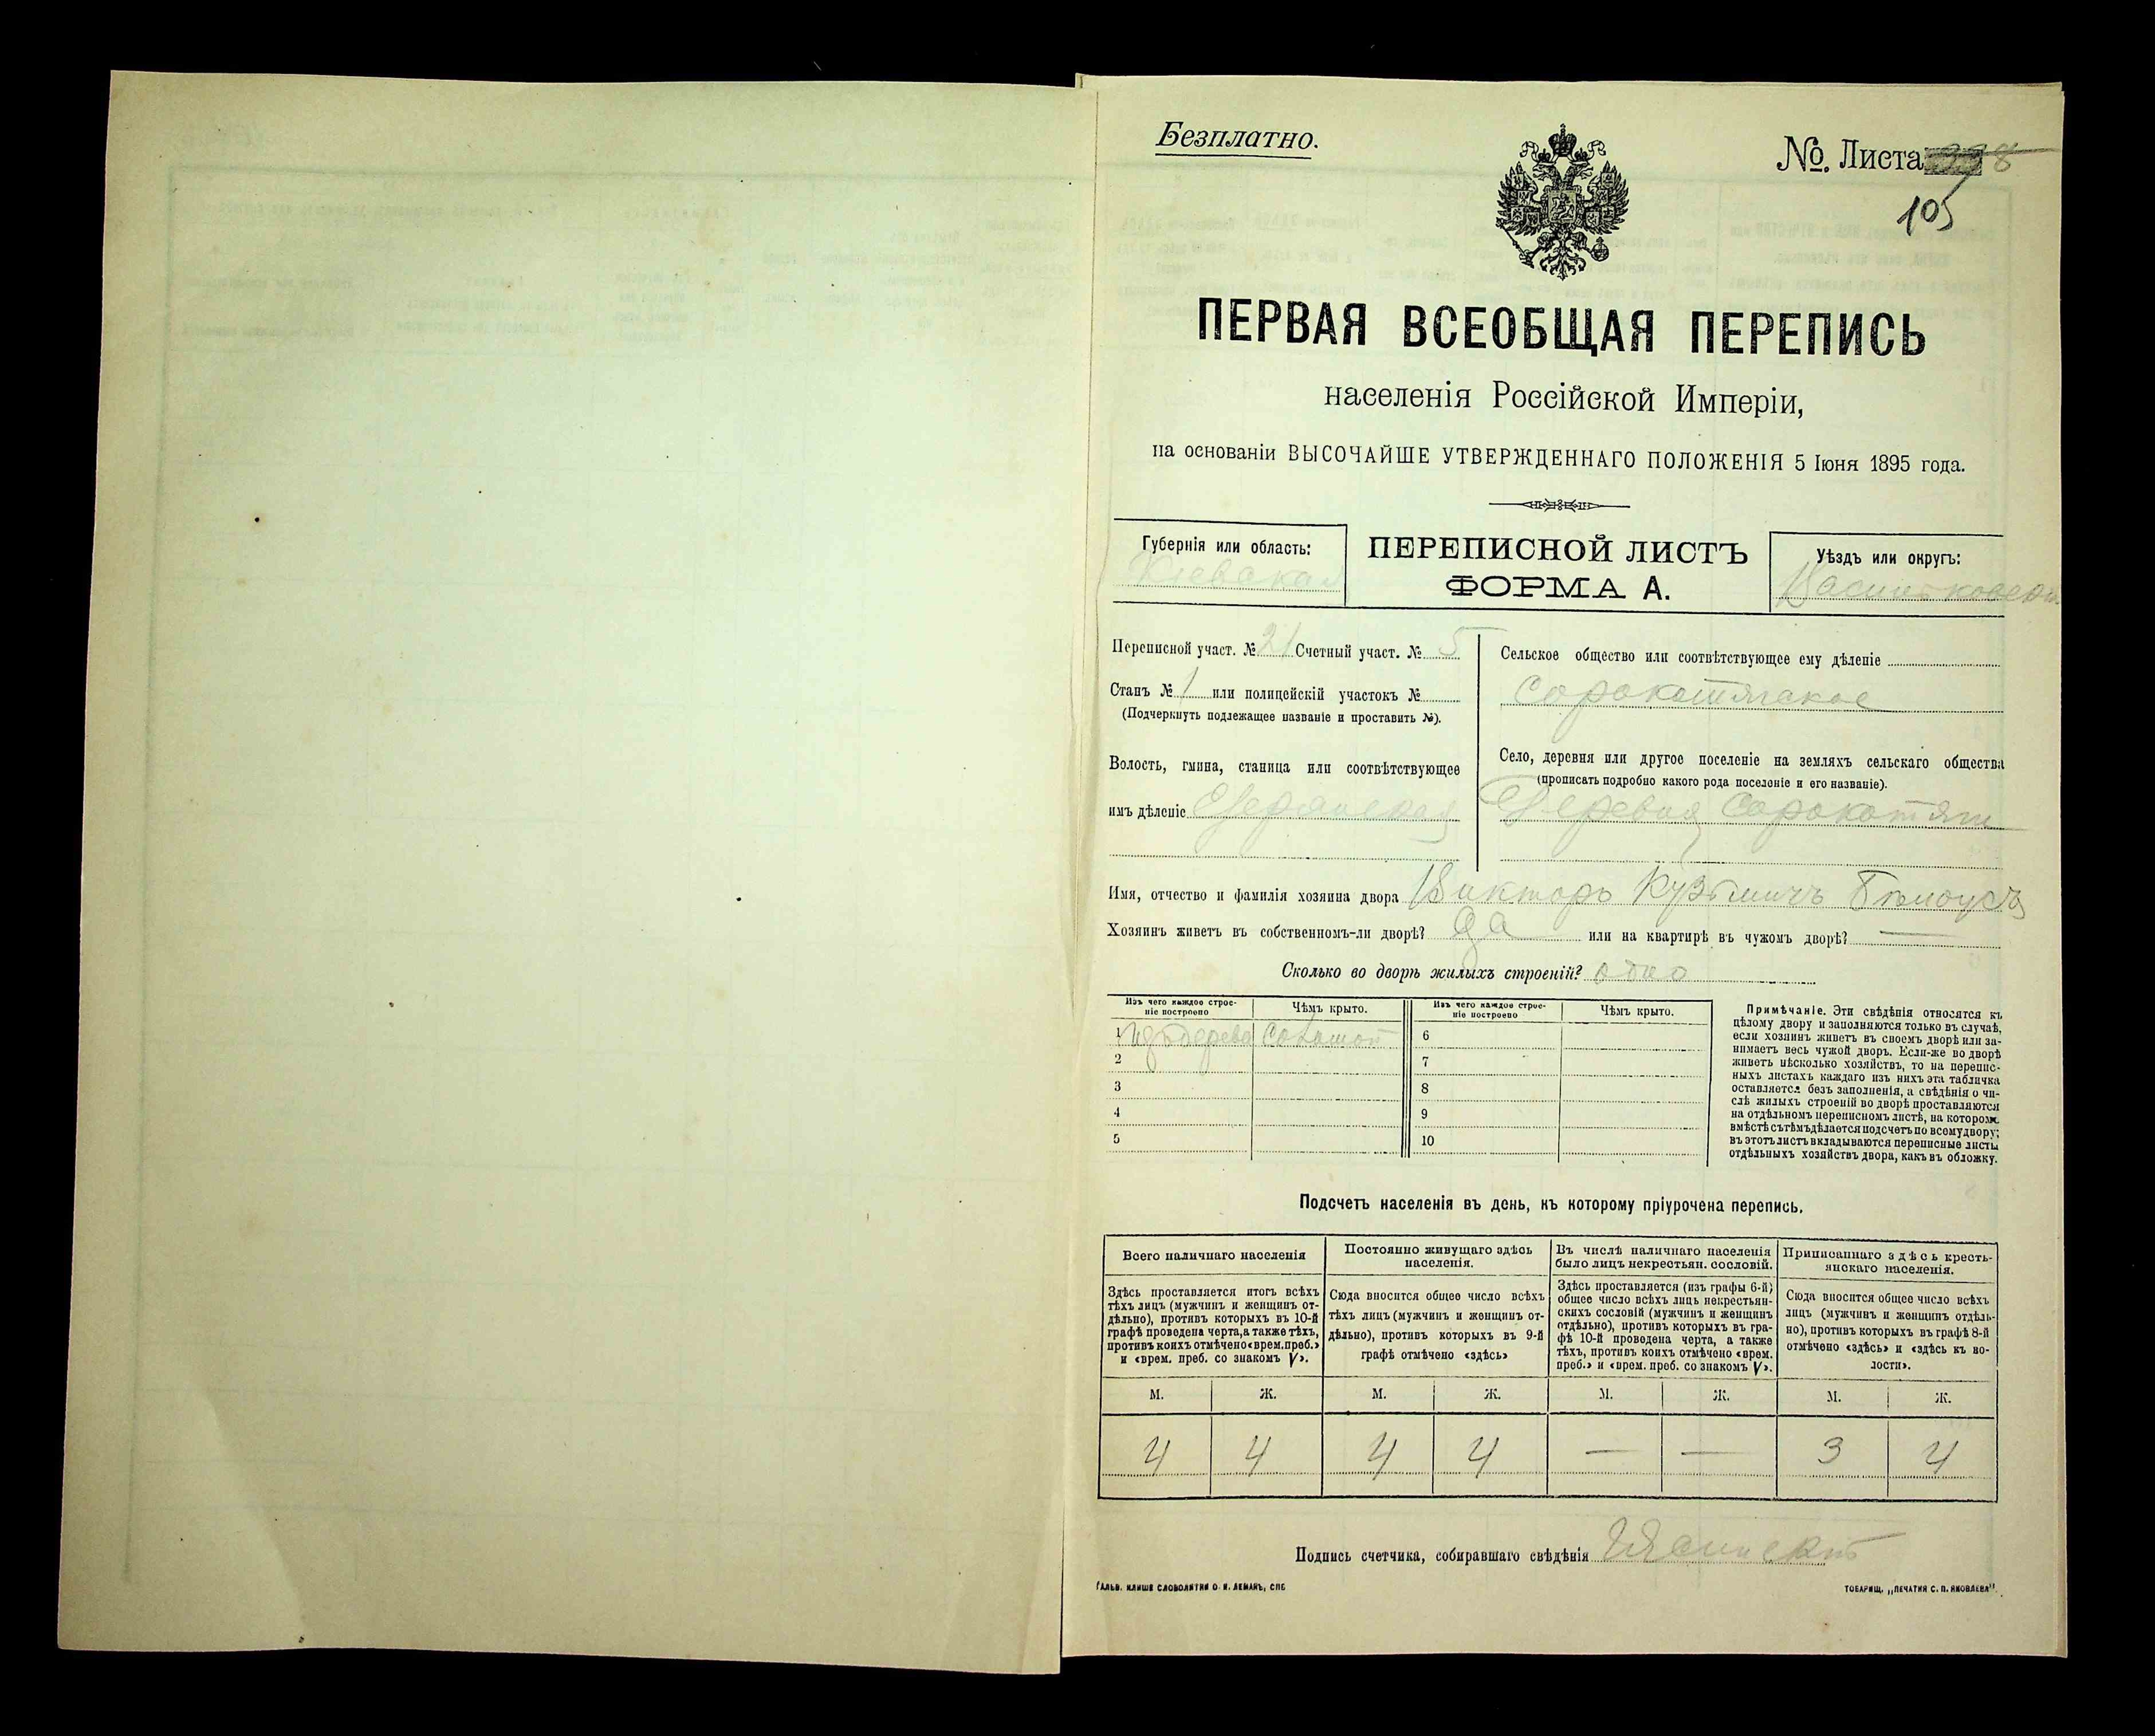 Безплатно.
№ Листа
105
ПЕРВАЯ ВСЕОБЩАЯ ПЕРЕПИСЬ
населенія Россійской Имперіи,
на основаніи ВЫСОЧАЙШЕ УТВЕРЖДЕННАГО ПОЛОЖЕНІЯ 5 Іюня 1895 года.
Губернія или область:
Кіевская
ПЕРЕПИСНОЙ ЛИСТЪ
ФОРМА А.
Уѣздъ или округъ:
Переписной участ. № 21 Счетный участ. № 5
Станъ № 1 или полицейскій участокъ №
(Подчеркнуть подлежащее названіе и проставить №).
Волость, гмина, станица или соотвѣтствующее
имъ дѣленіе
Сельское общество или соотвѣтствующее ему дѣленіе
Сорокотягское
Село, деревня или другое поселеніе на земляхъ сельскаго общества
(прописать подробно какого рода поселеніе и его названіе).
Деревня Сорокотяги
Имя, отчество и фамилія хозяина двора Викторъ Кузьмичъ Бѣлоусъ
Хозяинъ живетъ въ собственномъ-ли дворѣ? да или на квартирѣ въ чужомъ дворѣ? —
Сколько во дворѣ жилыхъ строеній? одно
Изъ чего каждое строе-
ніе построено
Чѣмъ крыто.
Изъ чего каждое строе-
ніе построено
Чѣмъ крыто.
1 Изъ дерева Соломой 6
2 7
3 8
4 9
5 10
Примѣчаніе. Эти свѣдѣнія относятся къ
цѣлому двору и заполняются только въ случаѣ,
если хозяинъ живетъ въ своемъ дворѣ или за-
нимаетъ весь чужой дворъ. Если-же во дворѣ
живетъ нѣсколько хозяйствъ, то на перепис-
ныхъ листахъ каждаго изъ нихъ эта табличка
оставляется безъ заполненія, а свѣдѣнія о чи-
слѣ жилыхъ строеній во дворѣ проставляются
на отдѣльномъ переписномъ листѣ, на которомъ
вмѣстѣ съ тѣмъ дѣлается подсчетъ по всему двору;
въ этотъ листъ вкладываются переписные листы
отдѣльныхъ хозяйствъ двора, какъ въ обложку.
Подсчетъ населенія въ день, къ которому пріурочена перепись.
Всего наличнаго населенія
Здѣсь проставляется итогъ всѣхъ
тѣхъ лицъ (мужчинъ и женщинъ от-
дѣльно), противъ которыхъ въ 10-й
графѣ проведена черта, а также тѣхъ,
противъ коихъ отмѣчено «врем. преб.»
и «врем. преб. со знакомъ V».
Постоянно живущаго здѣсь
населенія.
Сюда вносится общее число всѣхъ
тѣхъ лицъ (мужчинъ и женщинъ от-
дѣльно), противъ которыхъ въ 9-й
графѣ отмѣчено «здѣсь»
Въ числѣ наличнаго населенія
было лицъ некрестьян. сословій.
Здѣсь проставляется (изъ графы 6-й)
общее число всѣхъ лицъ некрестьян-
скихъ сословій (мужчинъ и женщинъ
отдѣльно), противъ которыхъ въ гра-
фѣ 10-й проведена черта, а также
тѣхъ, противъ коихъ отмѣчено «врем.
преб.» и «врем. преб. со знакомъ V».
Приписаннаго здѣсь кресть-
янскаго населенія.
Сюда вносится общее число всѣхъ
лицъ (мужчинъ и женщинъ отдѣль-
но), противъ которыхъ въ графѣ 8-й
отмѣчено «здѣсь» и «здѣсь къ во-
лости».
М. Ж. М. Ж. М. Ж. М. Ж.
4 4 4 4 — — 3 4
Подпись счетчика, собиравшаго свѣдѣнія
ГАЛЬВ. КЛИШЕ СЛОВОЛИТНИ О. И. ЛЕМАНЪ, СПБ
ТОВАРИЩ. „ПЕЧАТНЯ С. П. ЯКОВЛЕВА".